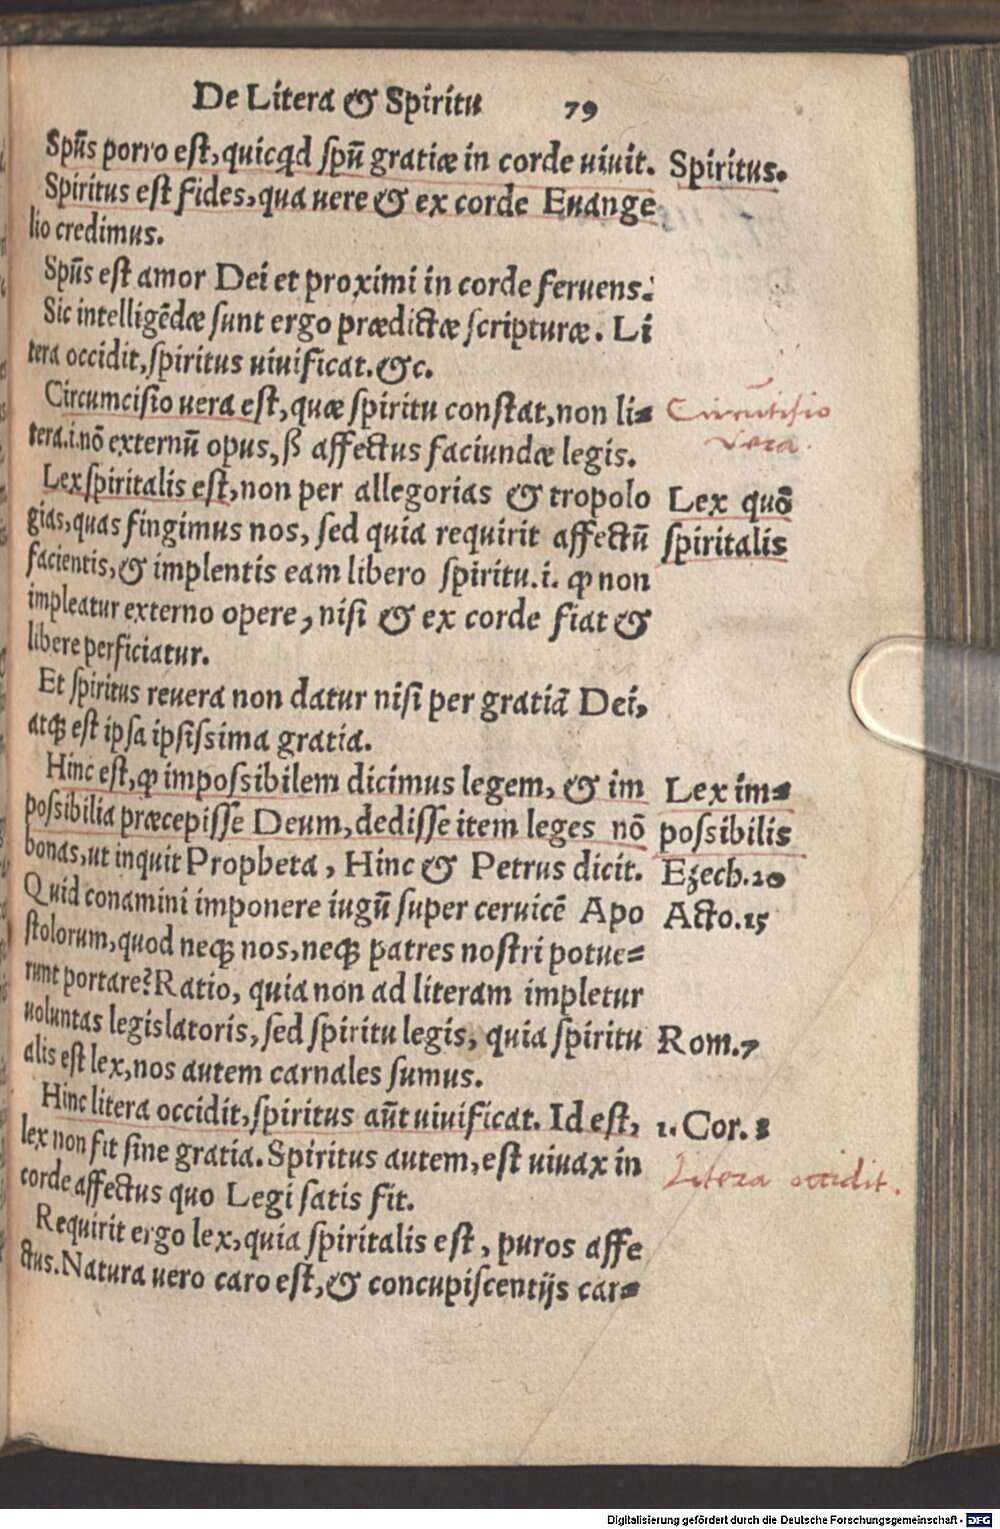 De Litera & Spiritu 79
Spūs porro est, quicqd spū gratiæ in corde uiuit. Spiritus.
Spiritus est fides, qua uere & ex corde Euange
lio credimus.
Spūs est amor Dei et proximi in corde feruens.
Sic intelligēdæ sunt ergo prædictæ scripturæ. Li
tera occidit, spiritus uiuificat. &c.
Circumcisio uera est, quæ spiritu constat, non li= Circūcisio
tera.i.nō externū opus, ß affectus faciundæ legis. vera.
Lex spiritalis est, non per allegorias & tropolo Lex quō
gias, quas fingimus nos, sed quia requirit affectū spiritalis
facientis, & implentis eam libero spiritu.i. ꝙ non
impleatur externo opere, nisi & ex corde fiat &
libere perficiatur.
Et spiritus reuera non datur nisi per gratiā Dei,
atqꝫ est ipsa ipsissima gratia.
Hinc est, ꝙ impossibilem dicimus legem, & im Lex im=
possibilia præcepisse Deum, dedisse item leges nō possibilis
bonas, ut inquit Propheta, Hinc & Petrus dicit. Ezech.20
Quid conamini imponere iugū super ceruicē Apo Acto.15
stolorum, quod neqꝫ nos, neqꝫ patres nostri potue=
runt portare? Ratio, quia non ad literam impletur
uoluntas legislatoris, sed spiritu legis, quia spiritu Rom.7
alis est lex, nos autem carnales sumus.
Hinc litera occidit, spiritus aūt uiuificat. Id est, 1. Cor. 8
lex non fit sine gratia. Spiritus autem, est uiuax in Litera occidit.
corde affectus quo Legi satis fit.
Requirit ergo lex, quia spiritalis est, puros affe
ctus. Natura uero caro est, & concupiscentijs car=
Digitalisierung gefördert durch die Deutsche Forschungsgemeinschaft - DFG